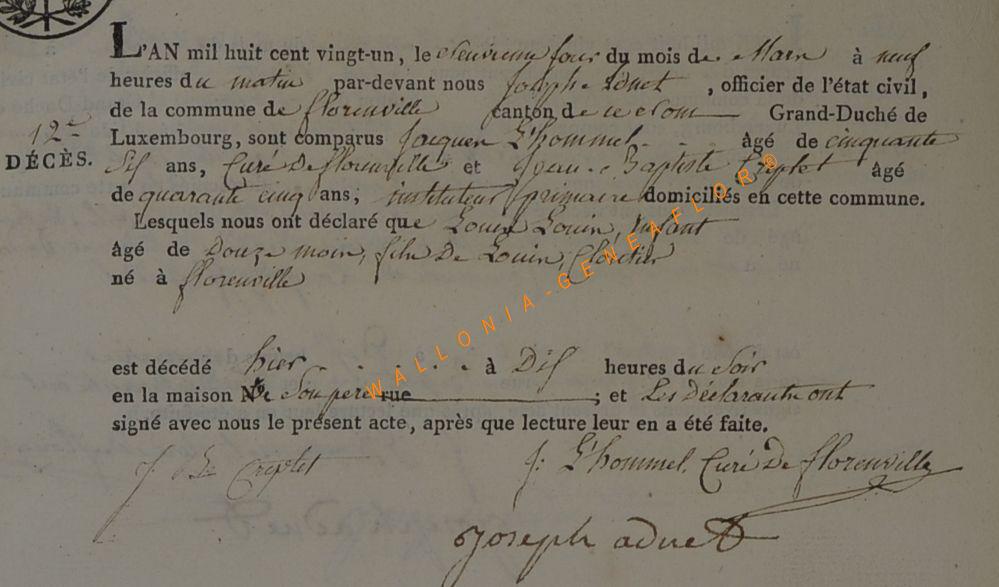 L'AN mil huit cent vingt-un, le neuvieme jour du mois de Mars à neuf
heures du matin par-devant nous Josephe Adnet, officier de l'état civil,
de la commune de florenville canton de ce nom Grand-Duché de
12e
DÉCÈS.
Luxembourg, sont comparus Jacques L'hommel âgé de cinquante
Six ans, Curé De florenville et Jean-Baptiste Criplet âgé
de quarante cinq ans; instituteur primaire domiciliés en cette commune.
Lesquels nous ont déclaré que Louis, Enfant
âgé de Douze mois, fils De Louis, Cloutier
né à florenville
est décédé hier à Dix heures du Soir
en la maison De Son pere rue ; et Les Déclarants ont
signé avec nous le présent acte, après que lecture leur en a été faite.
J Bte Criplet
J: L'hommel, Curé De florenville
Joseph adnet
WALLONIA-GENEAFLOR®